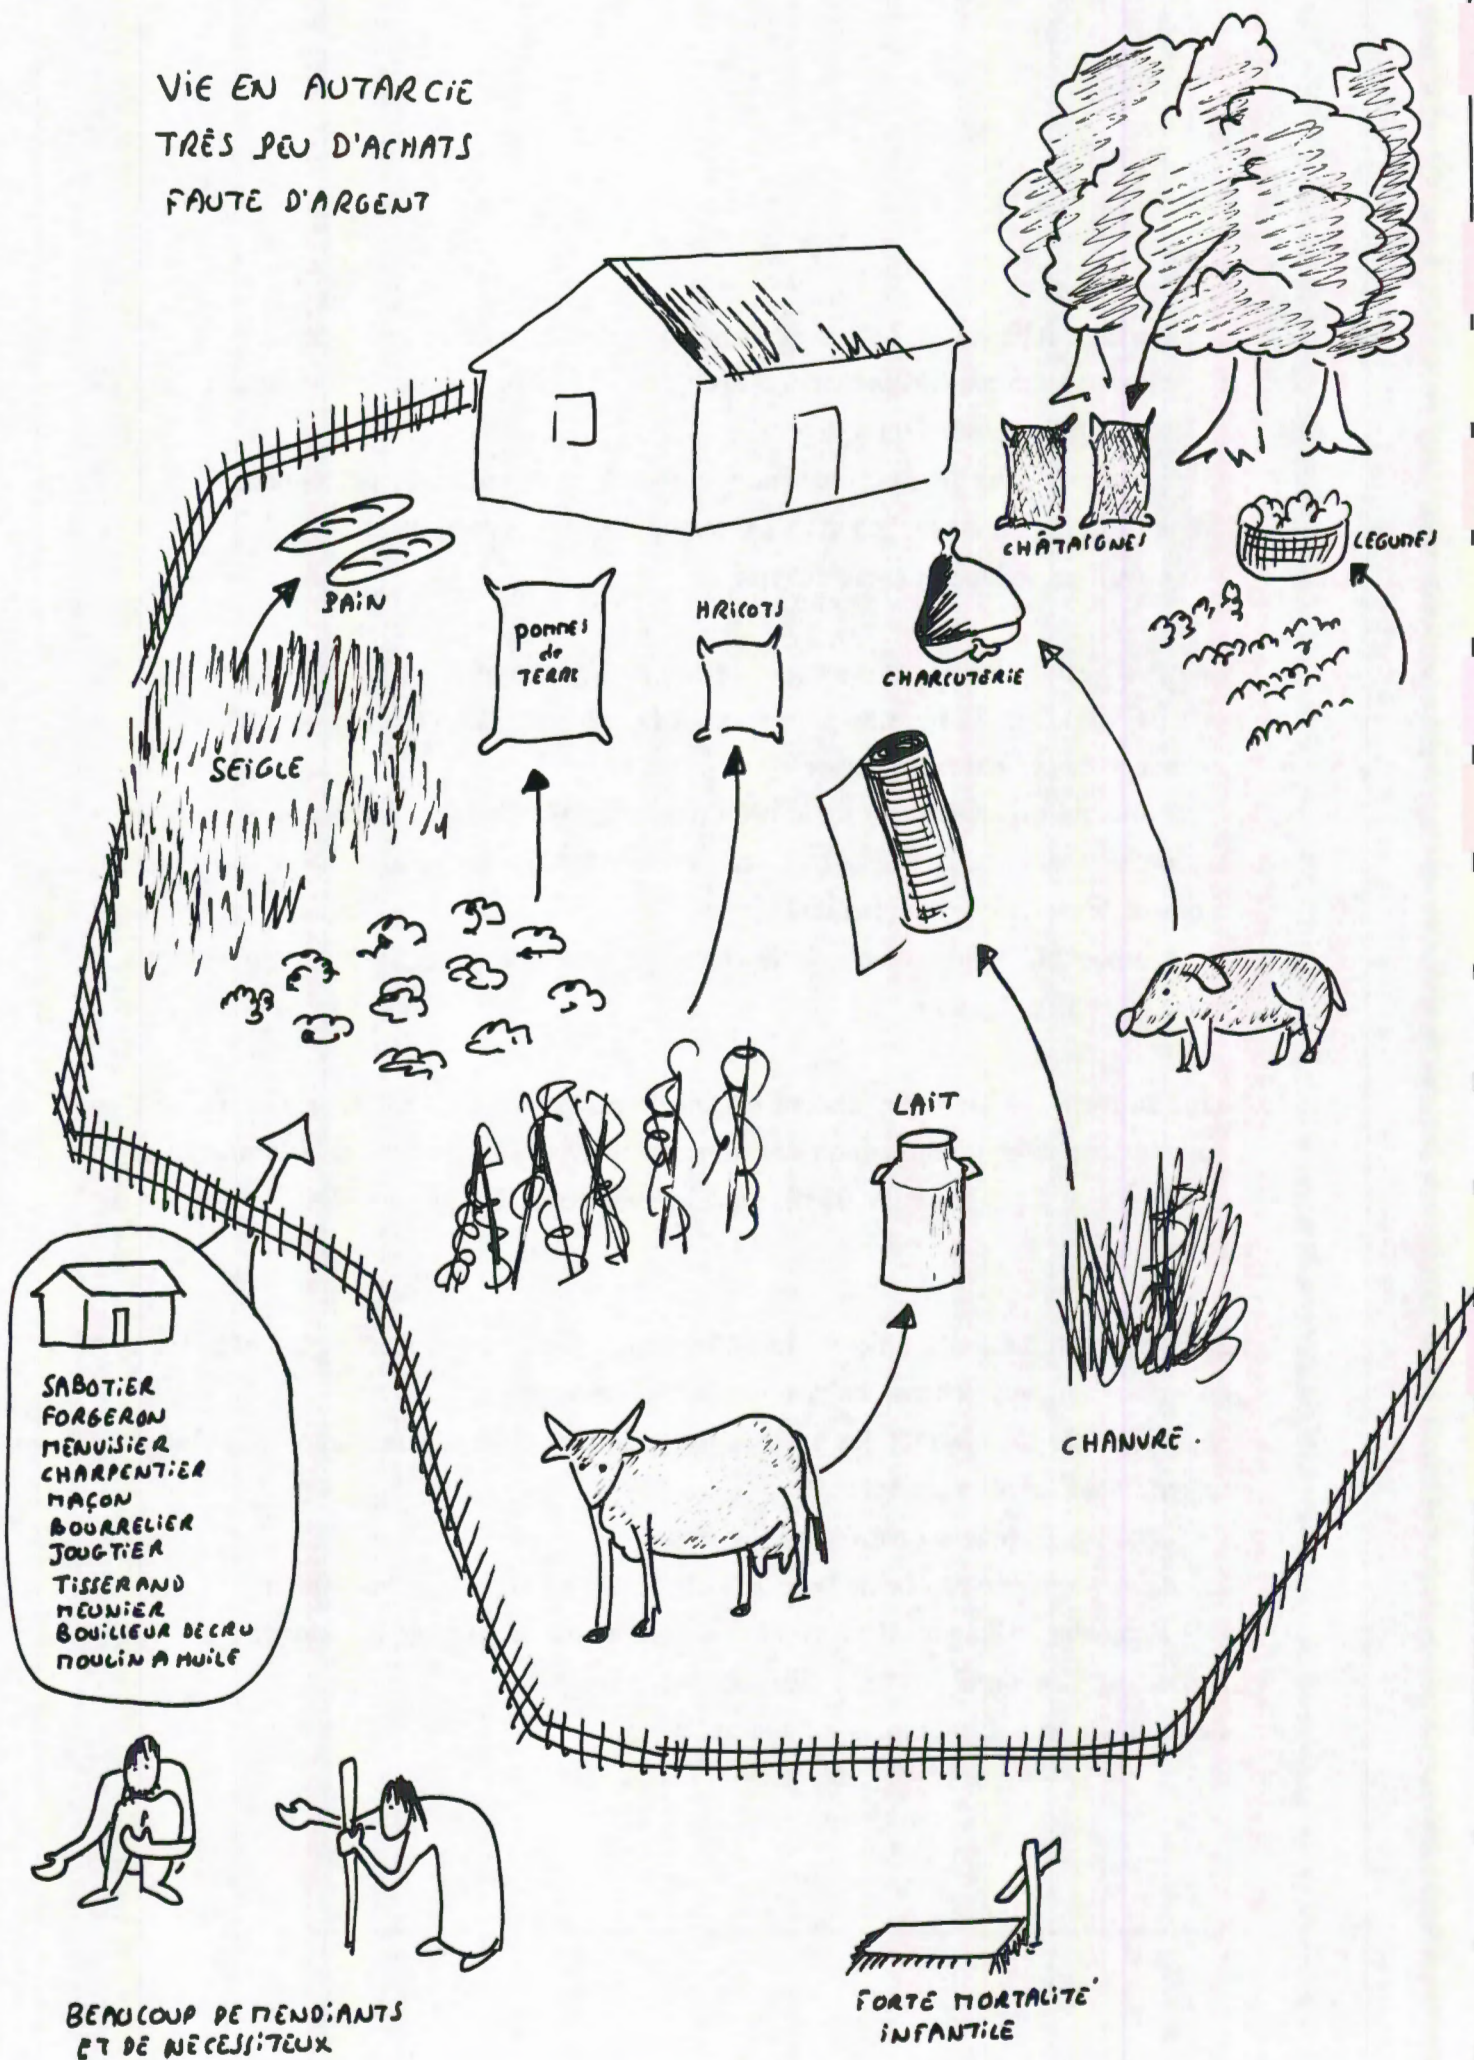 ViE EN AUTARCiE
TRÈS PEU D'ACHATS
FAUTE D'ARGENT
CHÂTAIGNES
LEGUMES
PAiN
POMMES
de
TERRE
HRICOTS
CHARCUTERiE
SEiGLE
LAiT
CHANVRE.
SABOTiER
FORGERON
MENUiSiER
CHARPENTiER
MAÇON
BOURRELiER
JOUGTiER
TiSSERAND
MEUNiER
BOUiLLEUR DE CRU
MOULiN A HUiLE
BEAUCOUP DE MENDiANTS
ET DE NECESSiTEUX
FORTE MORTALiTÉ
iNFANTiLE